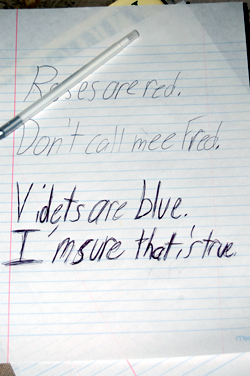 Roses are red.
Don't call mee Fred.
Videts are blue.
I'm sure that,'s true.